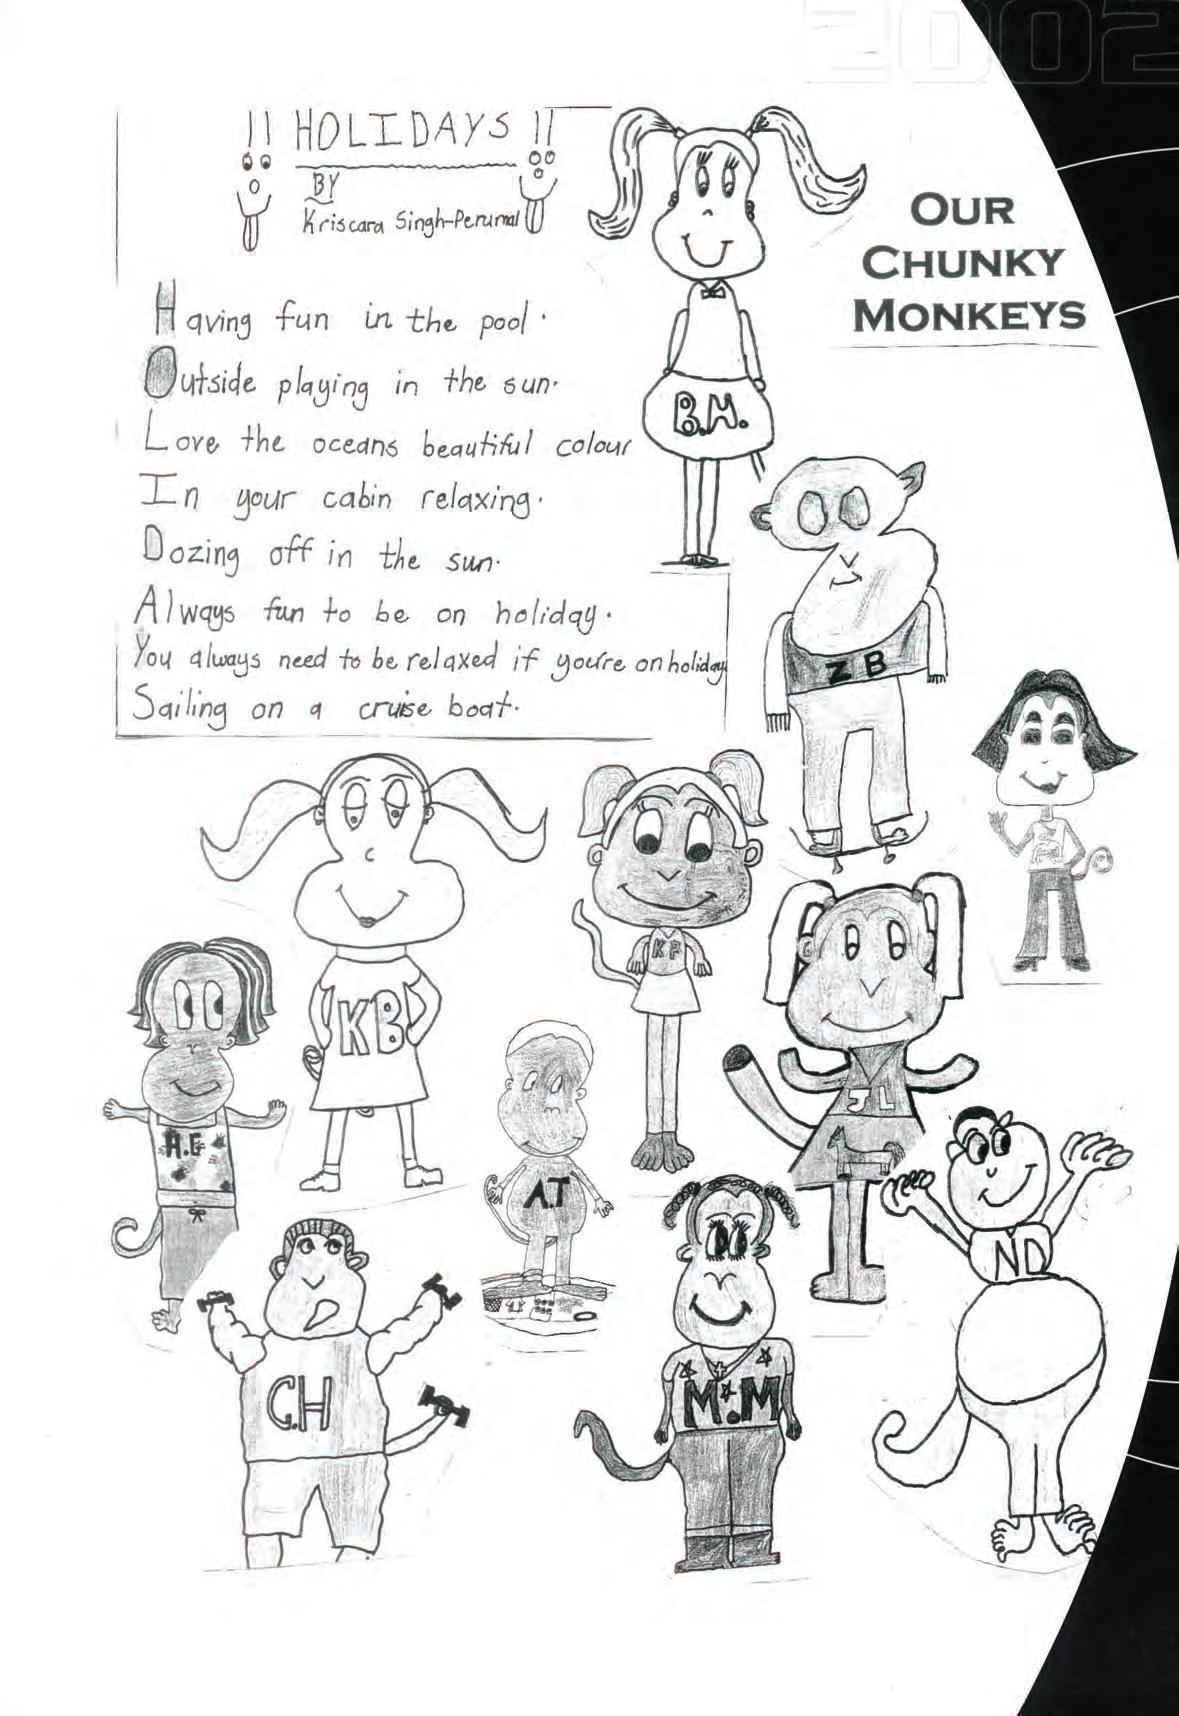 2002
!! HOLIDAYS !!
BY
Kriscara Singh-Perumal
Having fun in the pool.
Outside playing in the sun.
Love the oceans beautiful colour
In your cabin relaxing.
Dozing off in the sun.
Always fun to be on holiday.
You always need to be relaxed if you're on holiday
Sailing on a cruise boat.
OUR
CHUNKY
MONKEYS
B.M.
Z B
KB
KP
JL
A.G
A.T
ND
C.H
M.M